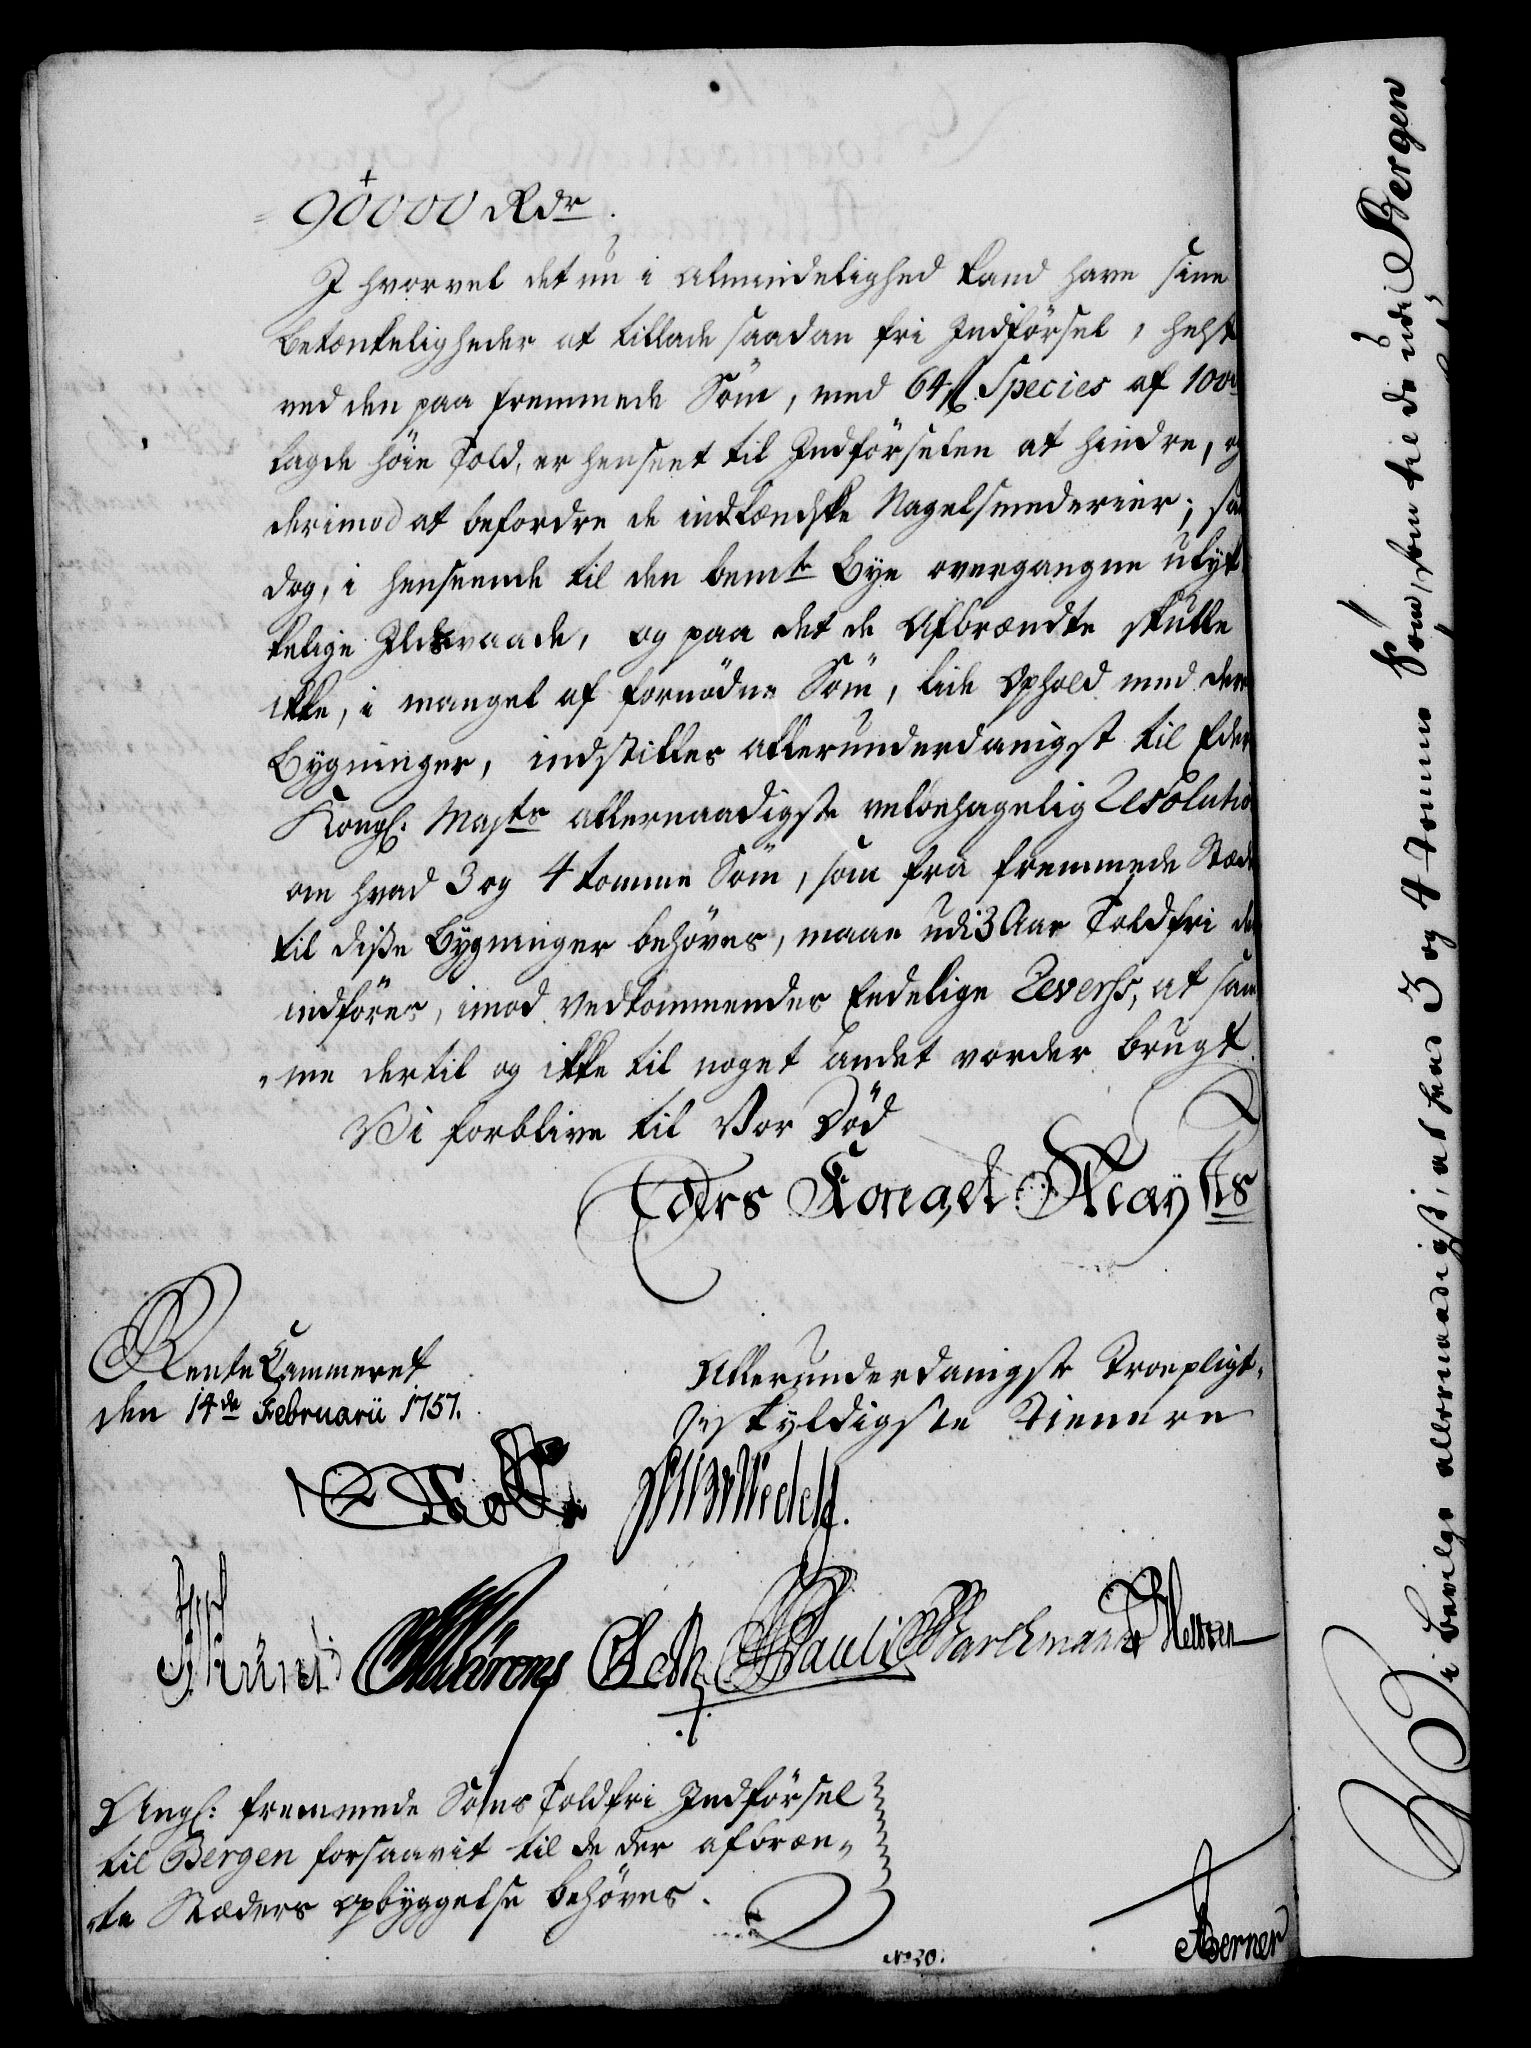 90000 Rdr.
I hvorvel det nu i Almindelighed kand have sine
Betænkeligheder at tillade saadan fri Indførsel, helst
ved den paa fremmede Søm, med 64 ß Species af 1000
lagde høie Told, er henseet til Indførselen at hindre, og
derimod at befordre de indlændske Nagelsmederier; saa
dog, i henseende til den bemte Bye overgangne ulyk-
kelige Ildsvaade, og paa det de Afbrændte skulle
ikke, i mangel af fornødne Søm, lide Ophold med deres
Bygninger, indstilles allerunderdanigst til Eders
Kongl. Majts allernaadigste velbehagelig Resolution
om hvad 3 og 4 tomme Søm, som fra fremmede Stæder
til disse Bygninger behøves, maae udi 3 Aar Toldfri der
indføres, imod vedkommendes Eedelige Revers, at sam-
me dertil og ikke til noget andet vorder brugt.
Vi forblive til Vor Død
Eders Kongel Mayts
Rente Cammeret
den 14de Februarii 1757.
Allerunderdanigst Troepligt-
skyldigste Tienere
Holst
Pauli Barchmann
Ang: fremmede Søms Toldfri Indførsel
til Bergen forsaavit til de der afbræn-
te Stæders opbyggelse behøves.
No 20.
Berner
Vi bevilge allernaadigst, at hvad 3 og 4 tomme Søm, som til de udi Bergen